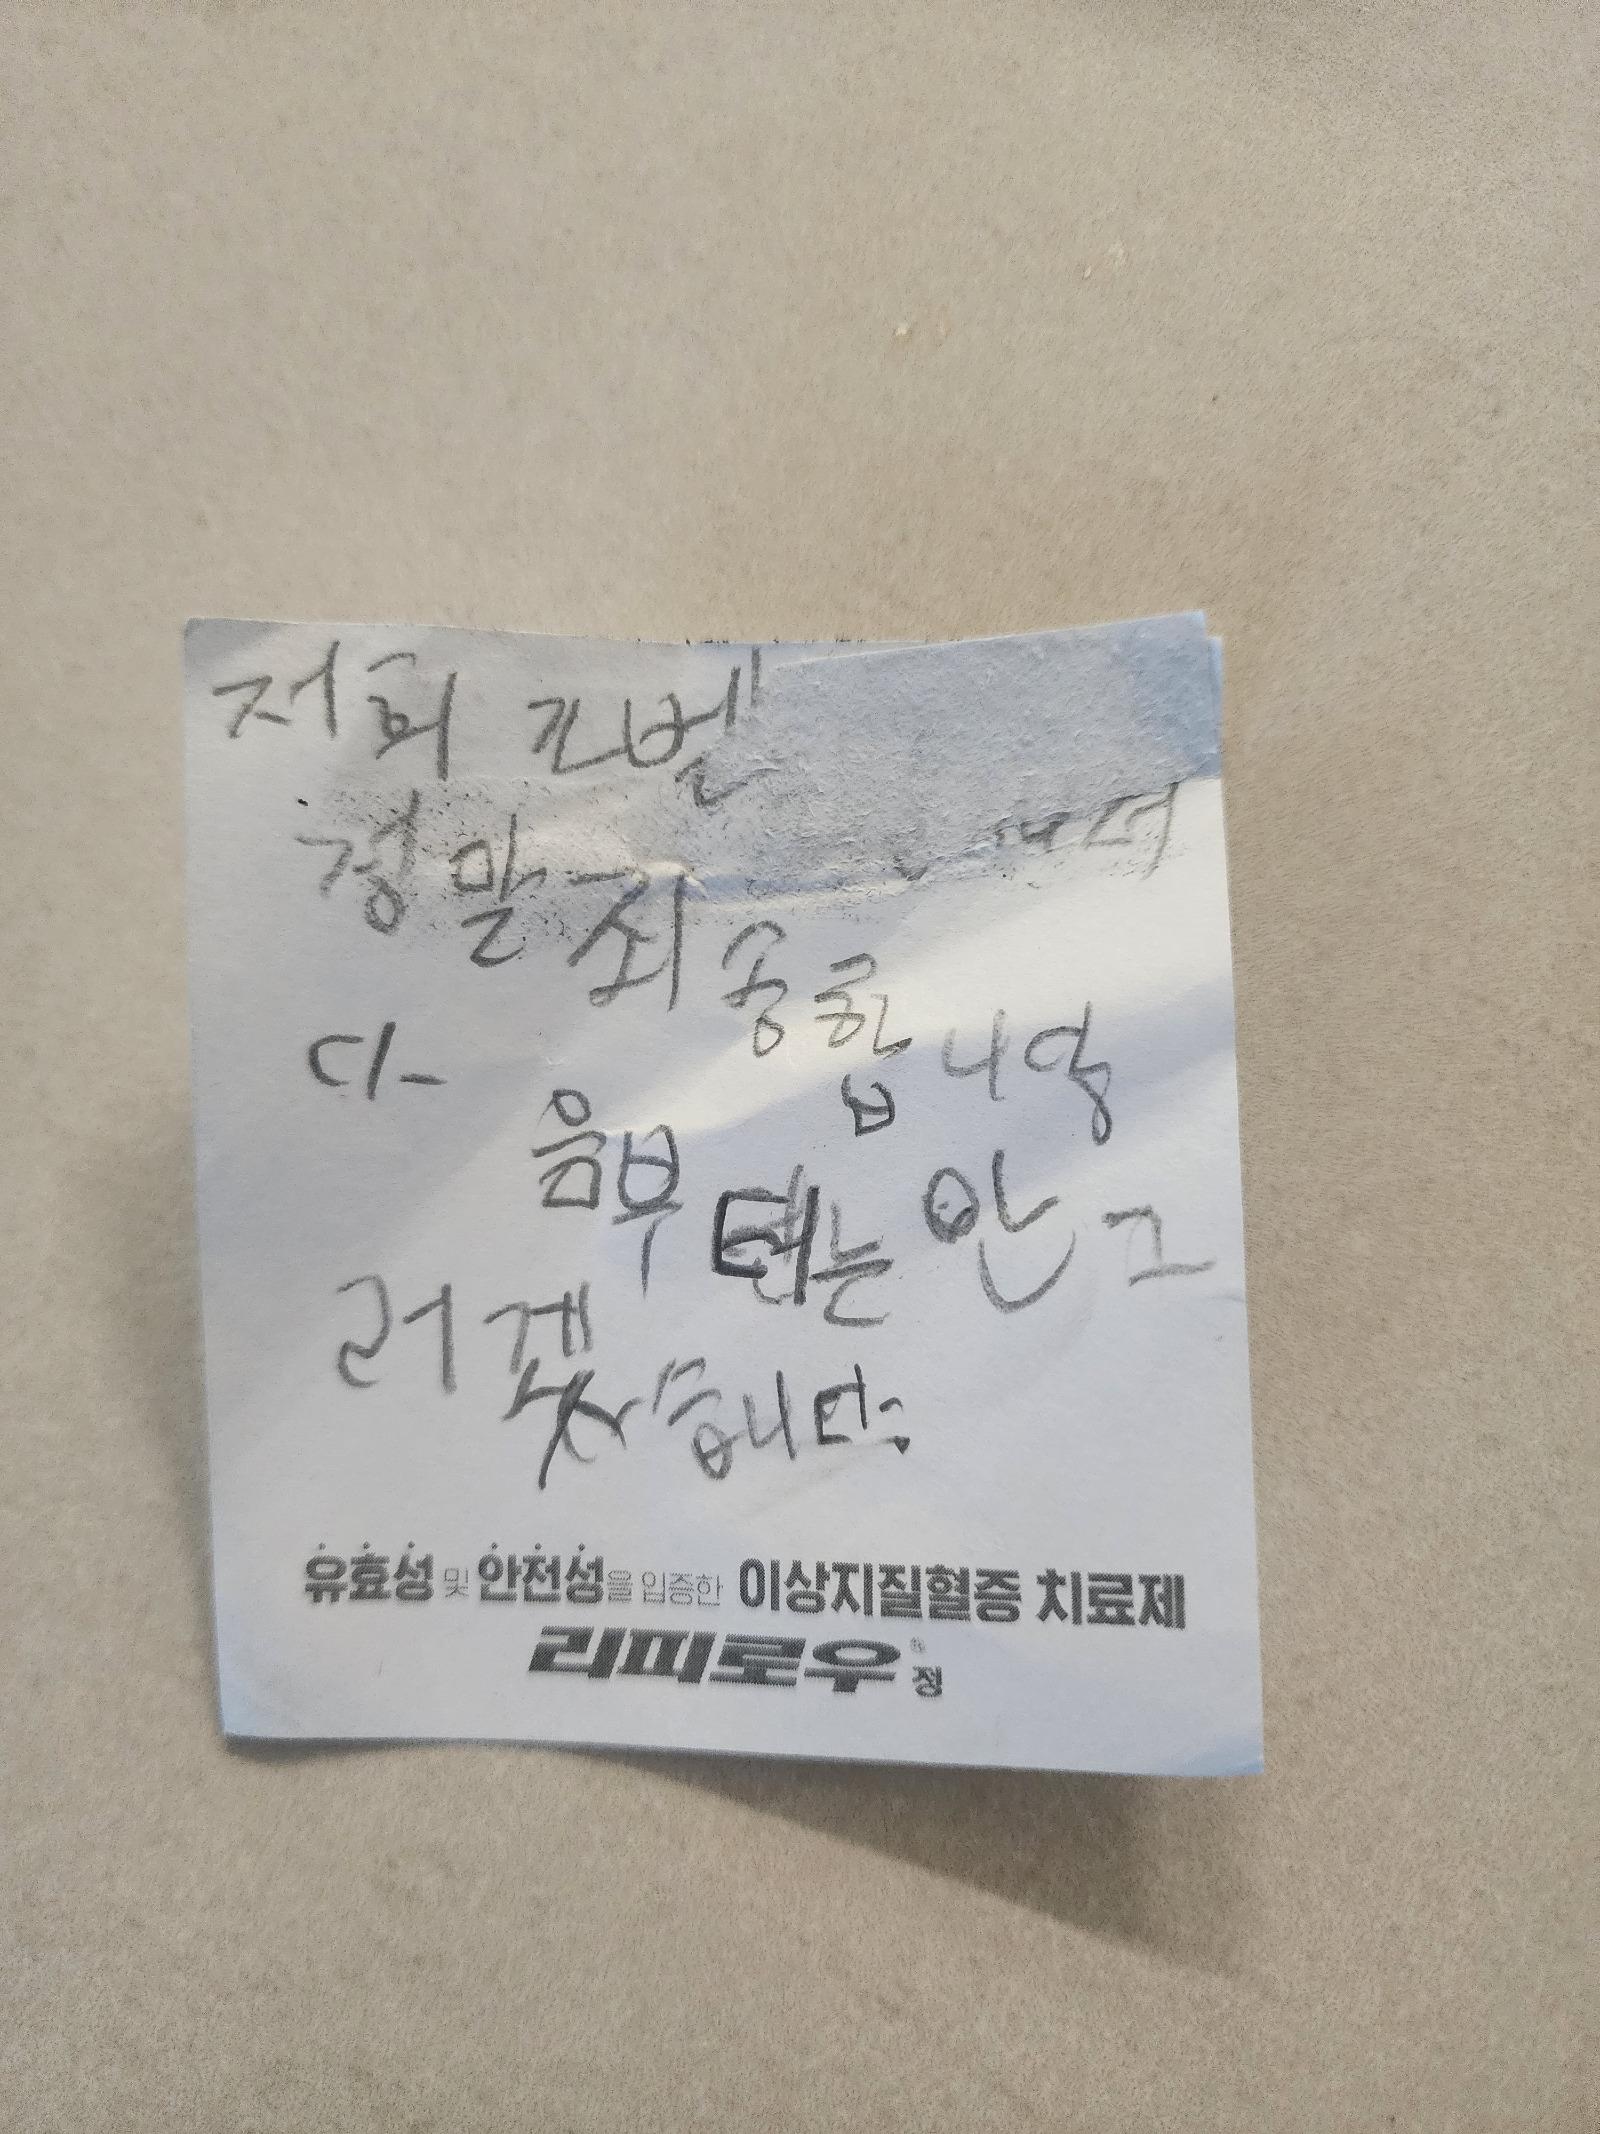 저희
서
정말 죄송합니당
다음부
턴는 안그
러겠습니다.
유효성 및 안전성을 입증한 이상지질혈증 치료제
리피로우® 정